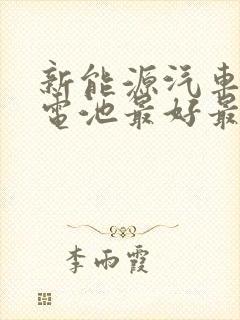 新能源汽车
电池最好最
李雨霞